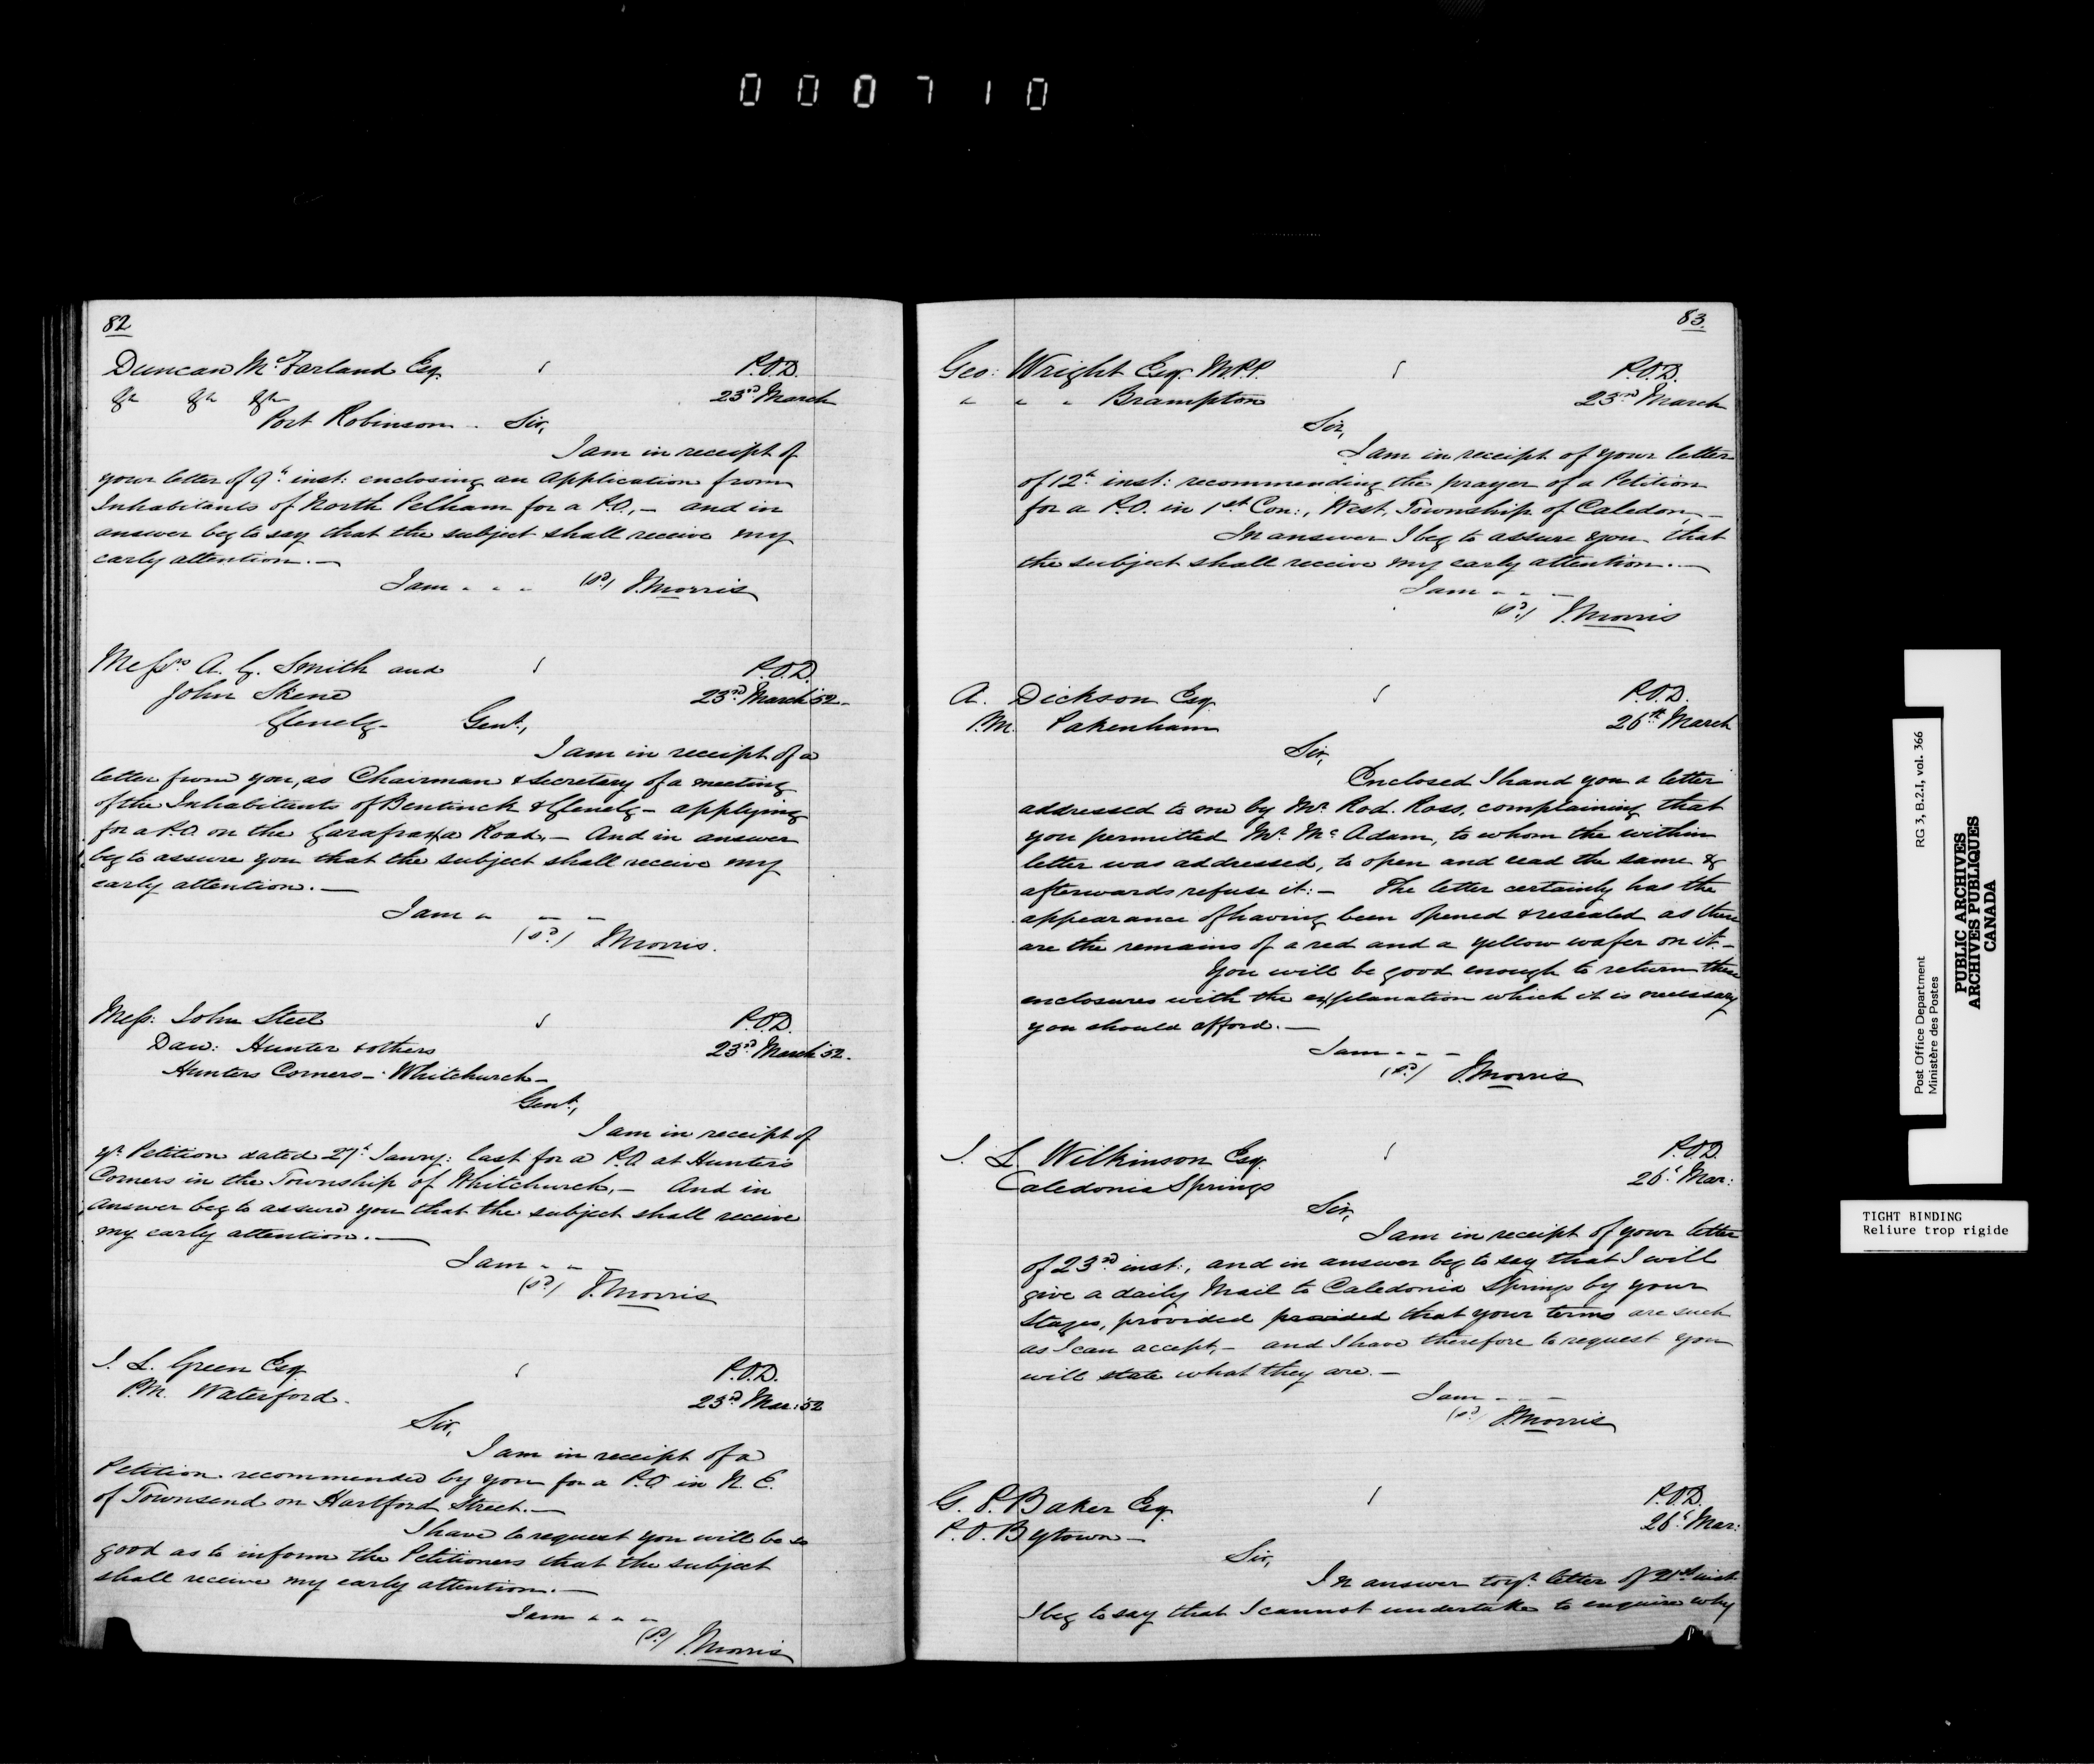 000710
82
Duncan McFarland Esq. P.O.D.
&c &c &c 23rd March
Port Robinson. Sir,
I am in receipt of
your letter of 9th inst: enclosing an application from
Inhabitants of North Pelham for a P.O., — and in
answer beg to say that the subject shall receive my
early attention. —
I am (sd) J. Morris
Messrs. A. G. Smith and P.O.D.
John Skene 23rd March '52.
Glenelg. Gent.,
I am in receipt of a
letter from you, as Chairman & Secretary of a meeting
of the Inhabitants of Bentinck & Glenelg — applying
for a P.O. on the Garafraxa Road, — And in answer
beg to assure you that the subject shall receive my
early attention. —
I am
(sd) J. Morris.
Mess: John Steel P.O.D.
Daw: Hunter & others 23rd March '52.
Hunters Corners — Whitchurch —
Gent.,
I am in receipt of
yr. Petition dated 27th Janry: last for a P.O. at Hunter's
Corners in the Township of Whitchurch, — And in
answer beg to assure you that the subject shall receive
my early attention. —
I am
(sd) J. Morris
J. L. Green Esq. P.O.D.
P.M. Waterford. 23rd Mar: '52
Sir,
I am in receipt of a
Petition recommended by you for a P.O. in N. E.
of Townsend on Hartford Street. —
I have to request you will be so
good as to inform the Petitioners that the subject
shall receive my early attention. —
I am
(sd) J. Morris
83.
Geo: Wright Esq. M.P.P. P.O.D.
" " " Brampton 23rd March
Sir,
I am in receipt of your letter
of 12th inst: recommending the prayer of a Petition
for a P.O. in 1st Con:, West, Township of Caledon, —
In answer I beg to assure you that
the subject shall receive my early attention. —
I am
(sd) J. Morris
A. Dickson Esq. P.O.D.
P.M. Pakenham 26th March
Sir,
Enclosed I hand you a letter
addressed to me by Mr. Rod. Ross, complaining that
you permitted Mr. McAdam, to whom the within
letter was addressed, to open and read the same &
afterwards refuse it: — The letter certainly has the
appearance of having been opened & resealed as there
are the remains of a red and a yellow wafer on it. —
You will be good enough to return these
enclosures with the explanation which it is necessary
you should afford. —
I am
(sd) J. Morris
J. L. Wilkinson Esq. P.O.D.
Caledonia Springs 26th Mar:
Sir,
I am in receipt of your letter
of 23rd inst:, and in answer beg to say that I will
give a daily Mail to Caledonia Springs by your
Stages, provided provided that your terms are such
as I can accept, — and I have therefore to request you
will state what they are. —
I am
(sd) J. Morris
G. P. Baker Esq. P.O.D.
P.O. Bytown — 26th Mar:
Sir,
In answer to yr. letter of 21st inst.
I beg to say that I cannot undertake to enquire why
RG 3, B.2.I, vol. 366
Post Office Department
Ministère des Postes
PUBLIC ARCHIVES
ARCHIVES PUBLIQUES
CANADA
TIGHT BINDING
Reliure trop rigide